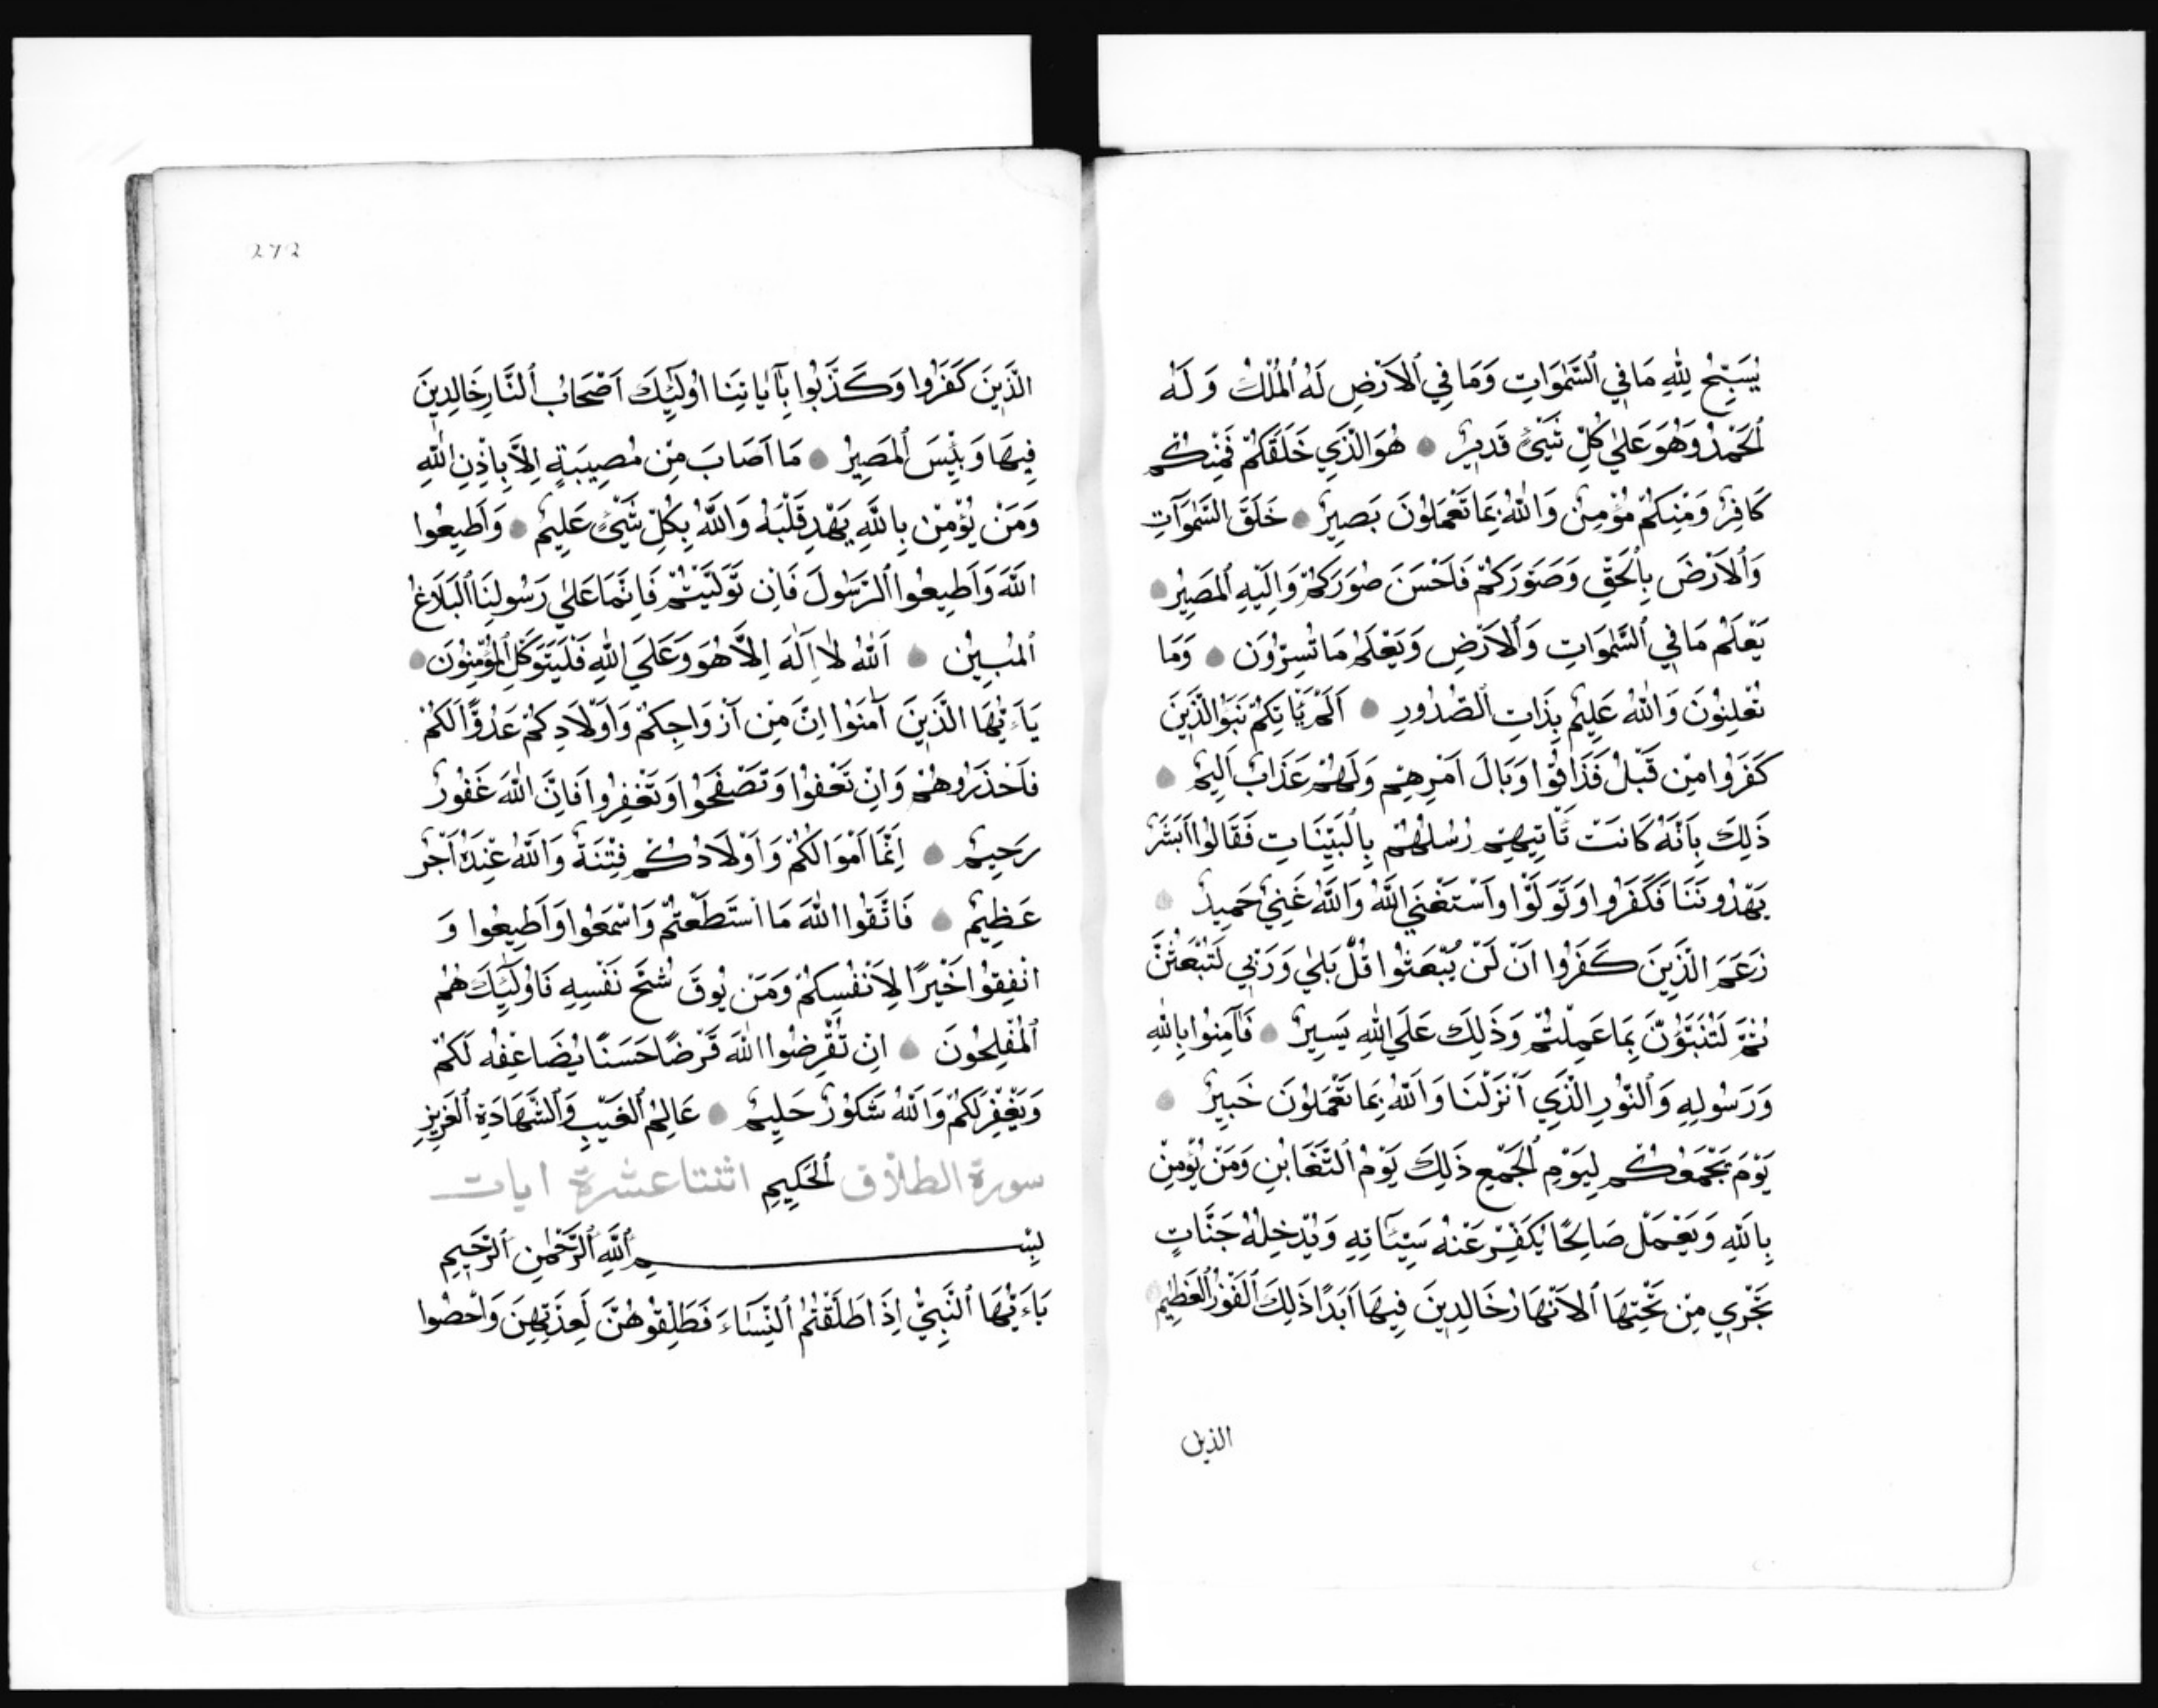 يُسَبِّحُ لِلّٰهِ مَا فِي ٱلسَّمٰوَاتِ وَمَا فِي ٱلاَرْضِ لَهُ ٱلمُلْكُ وَلَهُ
ٱلحَمْدُ وَهُوَ عَلٰي كُلِّ شَيْئٍ قَدِيرٌ ۝ هُوَ الَّذِي خَلَقَكُمْ فَمِنْكُمْ
كَافِرٌ وَمِنْكُمْ مُؤْمِنٌ وَاللّٰهُ بِمَا تَعْمَلُونَ بَصِيرٌ ۝ خَلَقَ السَّمٰوَاتِ
وَٱلاَرْضَ بِٱلحَقِّ وَصَوَّرَكُمْ فَاَحْسَنَ صُوَرَكُمْ وَاِلَيْهِ ٱلمَصِيرُ ۝
يَعْلَمُ مَا فِي ٱلسَّمٰوَاتِ وَٱلاَرْضِ وَيَعْلَمُ مَا تُسِرُّونَ ۝ وَمَا
تُعْلِنُونَ وَاللّٰهُ عَلِيمٌ بِذَاتِ ٱلصُّدُورِ ۝ اَلَمْ يَاْتِكُمْ نَبَؤُا الَّذِينَ
كَفَرُوا مِنْ قَبْلُ فَذَاقُوا وَبَالَ اَمْرِهِمْ وَلَهُمْ عَذَابٌ اَلِيمٌ ۝
ذَلِكَ بِاَنَّهُ كَانَتْ تَاْتِيهِمْ رُسُلُهُمْ بِٱلبَيِّنَاتِ فَقَالُوا اَبَشَرٌ
يَهْدُونَنَا فَكَفَرُوا وَتَوَلَّوْا وَٱسْتَغْنَي اللّٰهُ وَاللّٰهُ غَنِيٌّ حَمِيدٌ ۝
زَعَمَ الَّذِينَ كَفَرُوا اَنْ لَنْ يُبْعَثُوا قُلْ بَلٰي وَرَبِّي لَتُبْعَثُنَّ
ثُمَّ لَتُنَبَّؤُنَّ بِمَا عَمِلْتُمْ وَذَلِكَ عَلَي اللّٰهِ يَسِيرٌ ۝ فَآمِنُوا بِاللّٰهِ
وَرَسُولِهِ وَٱلنُّورِ الَّذِي اَنْزَلْنَا وَاللّٰهُ بِمَا تَعْمَلُونَ خَبِيرٌ ۝
يَوْمَ يَجْمَعُكُمْ لِيَوْمِ ٱلجَمْعِ ذَلِكَ يَوْمُ ٱلتَّغَابُنِ وَمَنْ يُؤْمِنْ
بِاللّٰهِ وَيَعْمَلْ صَالِحًا يُكَفِّرْ عَنْهُ سَيِّئَاتِهِ وَيُدْخِلْهُ جَنَّاتٍ
تَجْرِي مِنْ تَحْتِهَا ٱلاَنْهَارُ خَالِدِينَ فِيهَا اَبَدًا ذَلِكَ ٱلفَوْزُ ٱلعَظِيمُ ۝
الذين
272
الَّذِينَ كَفَرُوا وَكَذَّبُوا بِآيَاتِنَا اُولَئِكَ اَصْحَابُ ٱلنَّارِ خَالِدِينَ
فِيهَا وَبِئْسَ ٱلمَصِيرُ ۝ مَا اَصَابَ مِنْ مُصِيبَةٍ اِلاَّ بِاِذْنِ اللّٰهِ
وَمَنْ يُؤْمِنْ بِاللّٰهِ يَهْدِ قَلْبَهُ وَاللّٰهُ بِكُلِّ شَيْئٍ عَلِيمٌ ۝ وَاَطِيعُوا
اللّٰهَ وَاَطِيعُوا ٱلرَّسُولَ فَاِنْ تَوَلَّيْتُمْ فَاِنَّمَا عَلٰي رَسُولِنَا ٱلبَلَاغُ
ٱلمُبِينُ ۝ اَللّٰهُ لاَ اِلَهَ اِلاَّ هُوَ وَعَلَي اللّٰهِ فَلْيَتَوَكَّلِ ٱلمُؤْمِنُونَ ۝
يَاءَيُّهَا الَّذِينَ آمَنُوا اِنَّ مِنْ اَزْوَاجِكُمْ وَاَوْلَادِكُمْ عَدُوًّا لَكُمْ
فَاَحْذَرُوهُمْ وَاِنْ تَعْفُوا وَتَصْفَحُوا وَتَغْفِرُوا فَاِنَّ اللّٰهَ غَفُورٌ
رَحِيمٌ ۝ اِنَّمَا اَمْوَالُكُمْ وَاَوْلَادُكُمْ فِتْنَةٌ وَاللّٰهُ عِنْدَهُ اَجْرٌ
عَظِيمٌ ۝ فَاتَّقُوا اللّٰهَ مَا اسْتَطَعْتُمْ وَاسْمَعُوا وَاَطِيعُوا وَ
اَنْفِقُوا خَيْرًا لِاَنْفُسِكُمْ وَمَنْ يُوقَ شُحَّ نَفْسِهِ فَاُولَئِكَ هُمُ
ٱلمُفْلِحُونَ ۝ اِنْ تُقْرِضُوا اللّٰهَ قَرْضًا حَسَنًا يُضَاعِفْهُ لَكُمْ
وَيَغْفِرْ لَكُمْ وَاللّٰهُ شَكُورٌ حَلِيمٌ ۝ عَالِمُ ٱلغَيْبِ وَٱلشَّهَادَةِ ٱلعَزِيزِ
سورة الطلاق ٱلحَكِيمِ اثنتا عشرة ايات
بِسْمِ اللّٰهِ ٱلرَّحْمٰنِ ٱلرَّحِيمِ
يَاءَيُّهَا ٱلنَّبِيُّ اِذَا طَلَّقْتُمُ ٱلنِّسَاءَ فَطَلِّقُوهُنَّ لِعِدَّتِهِنَّ وَاَحْصُوا